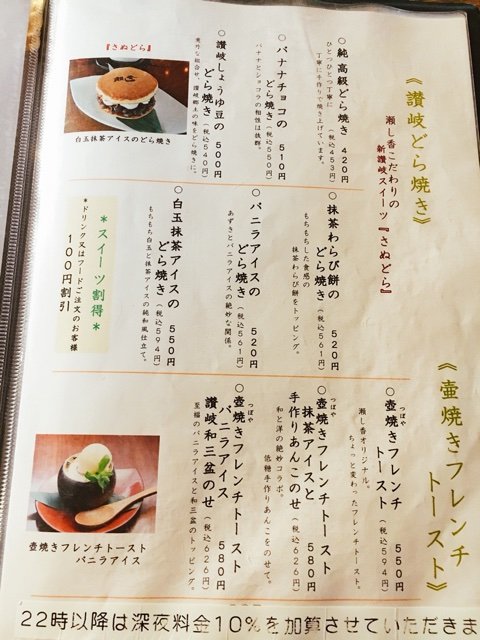 《讃岐どら焼き》
瀬し香こだわりの
新讃岐スイーツ『さぬどら』
○純 高級どら焼き 420円
(税込453円)
ひとつひとつ丁寧に
丁寧に手作りで焼き上げています。
○バナナチョコの
どら焼き 510円
(税込550円)
バナナとショコラの相性は抜群。
○讃岐しょうゆ豆の
どら焼き 500円
(税込540円)
意外な組合せ。讃岐郷土の味をどら焼きに。
『さぬどら』
白玉抹茶アイスのどら焼き
○抹茶わらび餅の
どら焼き 520円
(税込561円)
もちもちした食感の
抹茶わらび餅をトッピング。
○バニラアイスの
どら焼き 520円
(税込561円)
あずきとバニラアイスの絶妙な関係。
○白玉抹茶アイスの
どら焼き 550円
(税込594円)
もちもち白玉と抹茶アイスの純和風仕立て。
*スイーツ割得*
*ドリンク又はフードご注文のお客様
100円割引
《壷焼きフレンチ
トースト》
○壺焼きフレンチ
つぼや
トースト 550円
(税込594円)
瀬し香オリジナル。
ちょっと変わったフレンチトースト。
○壺焼きフレンチトースト
つぼや
抹茶アイスと
手作りあんこのせ 580円
(税込626円)
和と洋の絶妙コラボ。
低糖手作りあんこをのせて。
○壺焼きフレンチトースト
つぼや
バニラアイス
讃岐和三盆のせ 580円
(税込626円)
至福のバニラアイスと和三盆のトッピング。
壺焼きフレンチトースト
バニラアイス
22時以降は深夜料金10%を加算させていただきま